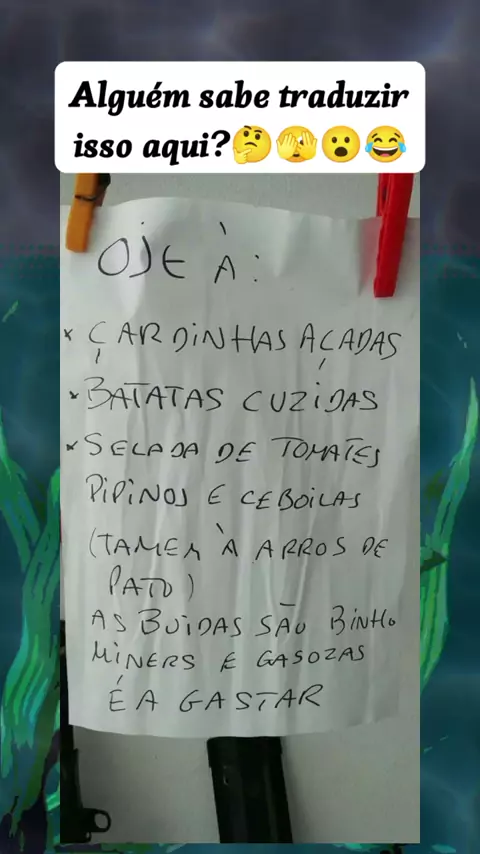 Alguém sabe traduzir
isso aqui?🤔🫣😮😂
OJE À:
* ÇARDINHAS AÇADAS
* BATATAS CUZIDAS
* SELADA DE TOMATES
PIPINOS E CEBOILAS
(TAMEM À ARROS DE
PATO)
AS BUIDAS SÃO BINHO
MINERS E GASOZAS
É A GASTAR